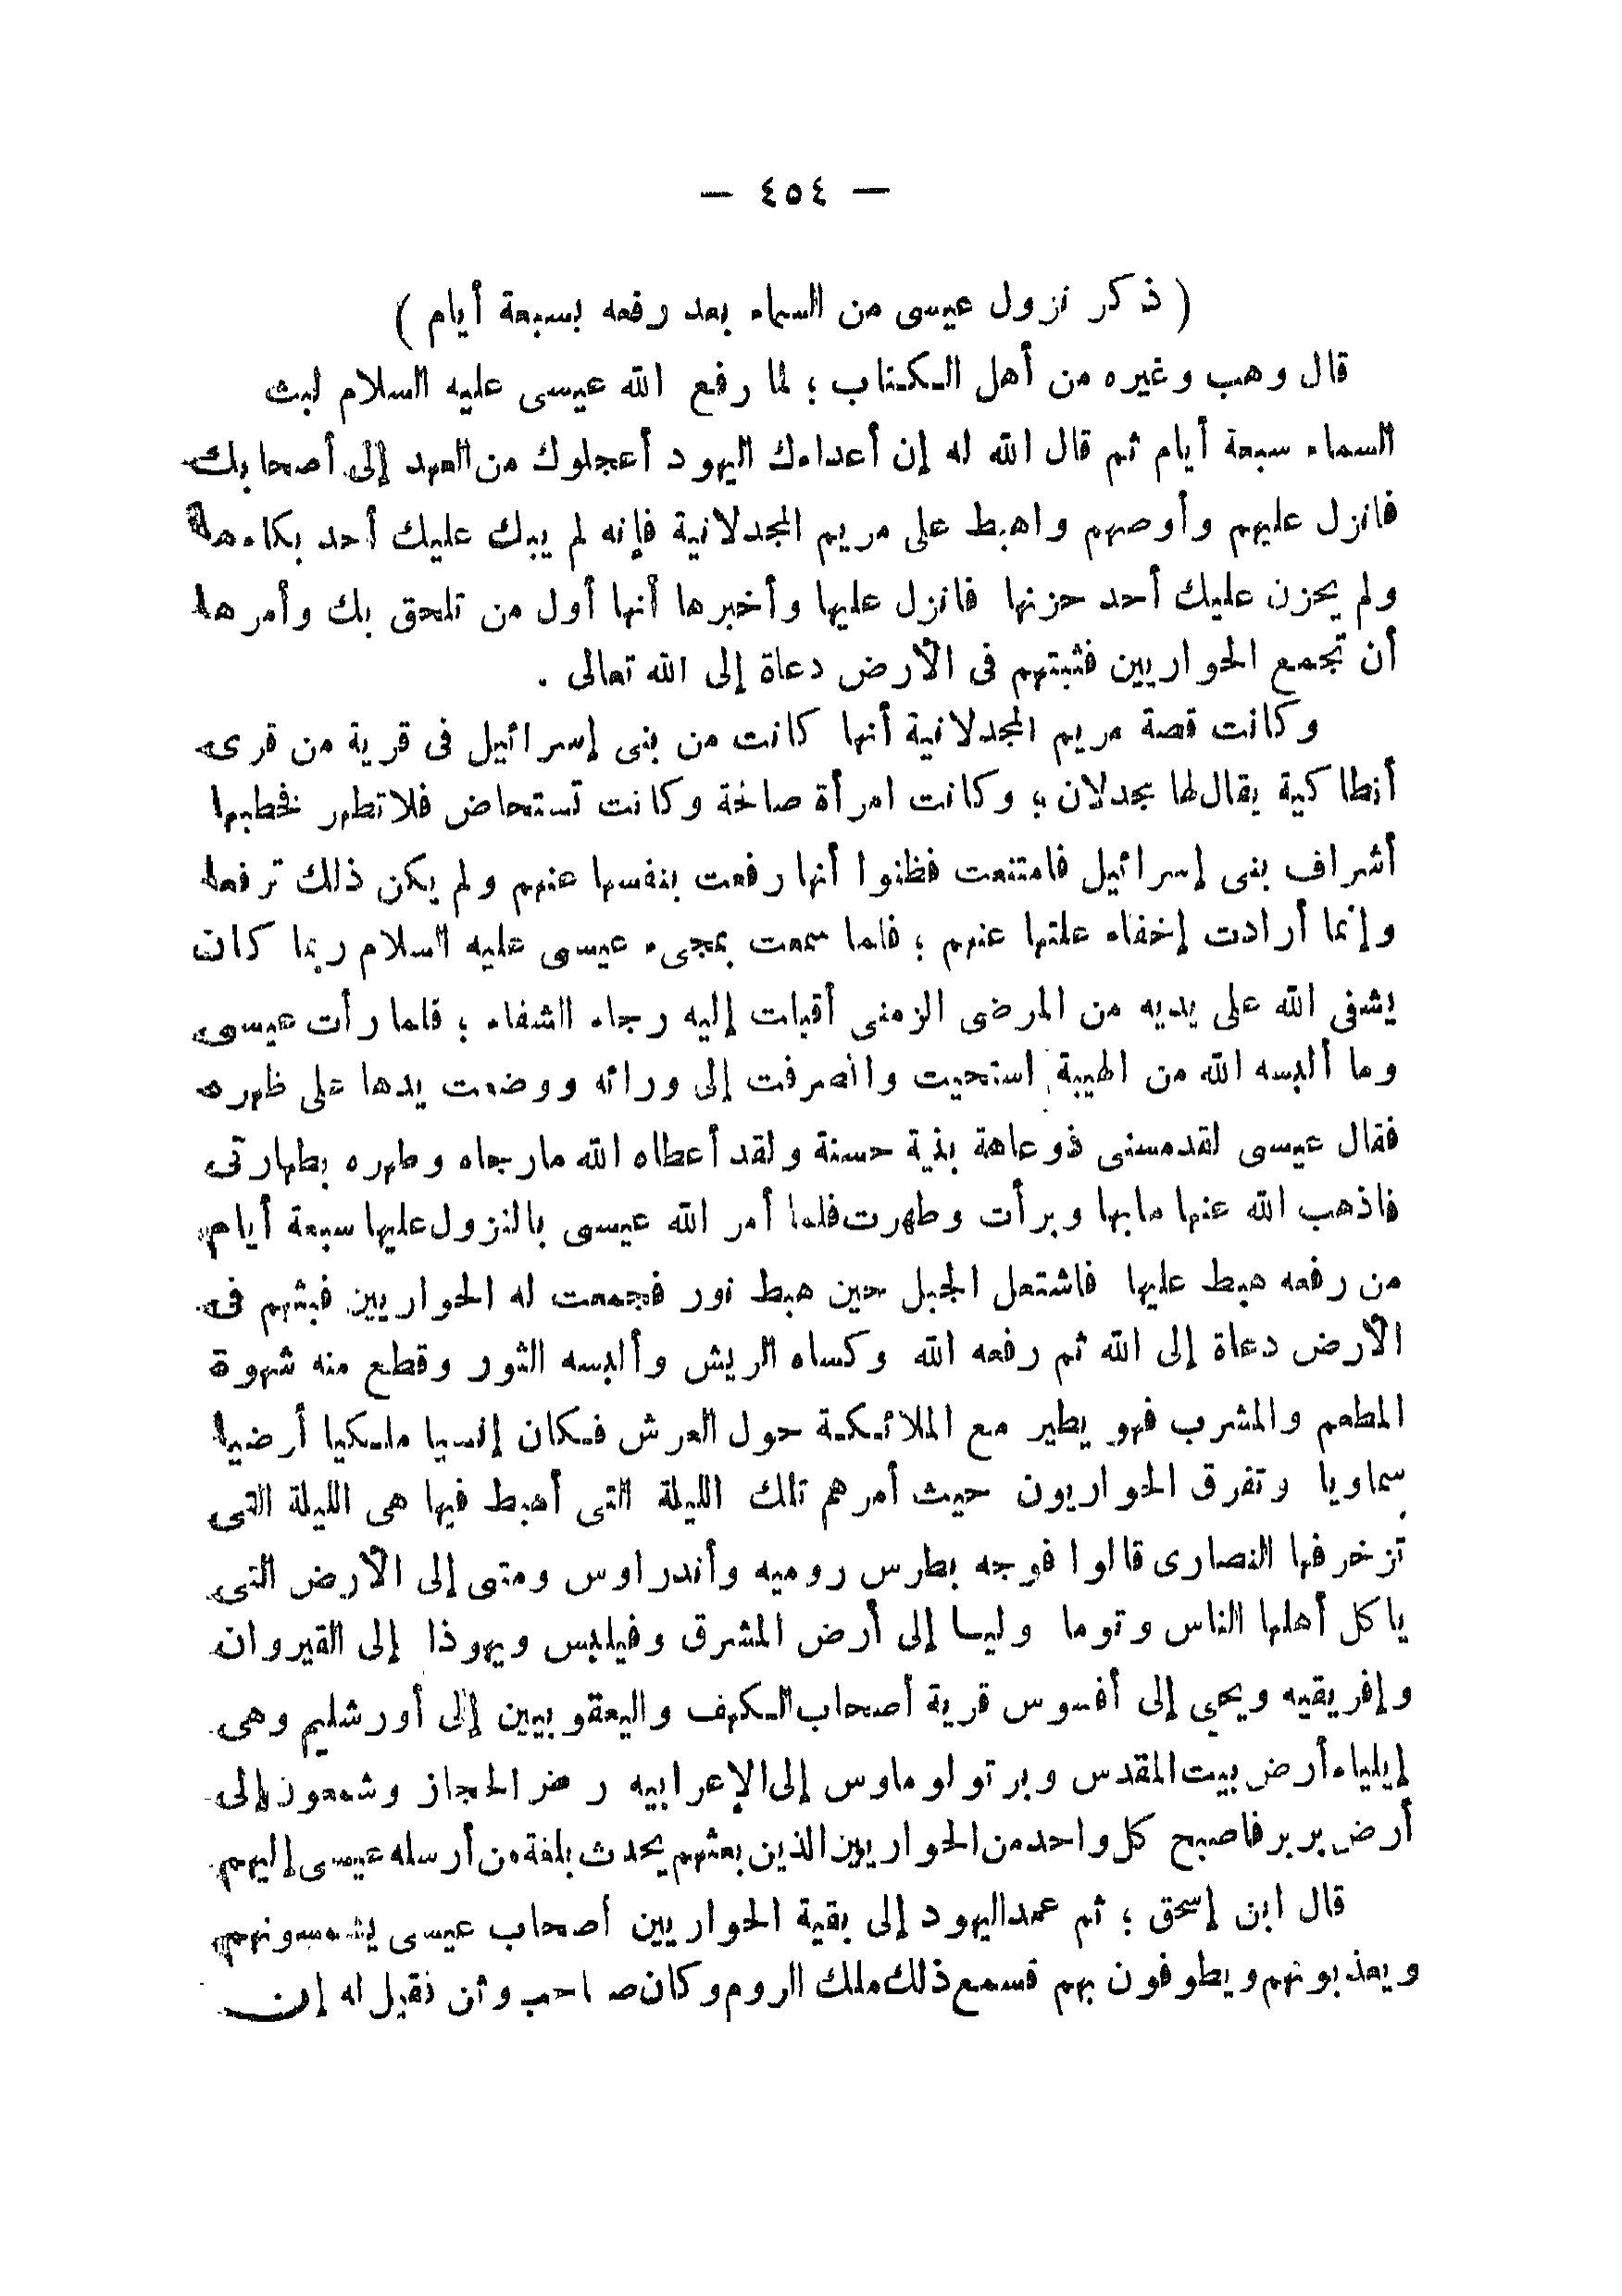 — ٤٥٤ —
( ذكر نزول عيسى من السماء بعد رفعه بسبعة أيام )
قال وهب وغيره من أهل الكتاب ؛ لما رفع الله عيسى عليه السلام لبث
السماء سبعة أيام ثم قال الله له إن أعداءك اليهود أعجلوك من العهد إلى أصحابك
فانزل عليهم وأوصهم واهبط على مريم المجدلانية فإنه لم يبك عليك أحد بكاءها
ولم يحزن عليك أحد حزنها فانزل عليها وأخبرها أنها أول من تلحق بك وأمرها
أن تجمع الحواريين فثبتهم فى الأرض دعاة إلى الله تعالى .
وكانت قصة مريم المجدلانية أنها كانت من بنى إسرائيل فى قرية من قرى
أنطاكية يقال لها مجدلان ؛ وكانت امرأة صالحة وكانت تستحاض فلا تطهر فخطبها
أشراف بنى إسرائيل فامتنعت فظنوا أنها رفعت بنفسها عنهم ولم يكن ذلك ترفعا
وإنما أرادت إخفاء علتها عنهم ؛ فلما سمعت بمجىء عيسى عليه السلام ربما كان
يشفى الله على يديه من المرضى الزمنى أقبلت إليه رجاء الشفاء ؛ فلما رأت عيسى
وما ألبسه الله من الهيبة استحيت وانصرفت إلى ورائه ووضعت يدها على ظهره
فقال عيسى لقد مسنى ذو عاهة بنية حسنة ولقد أعطاه الله ما رجاه وطهره بطهارتى
فاذهب الله عنها ما بها وبرأت وطهرت فلما أمر الله عيسى بالنزول عليها سبعة أيام
من رفعه هبط عليها فاشتعل الجبل حين هبط نور فجمعت له الحواريين فبثهم فى
الأرض دعاة إلى الله ثم رفعه الله وكساه الريش وألبسه النور وقطع منه شهوة
المطعم والمشرب فهو يطير مع الملائكة حول العرش فكان إنسيا ملكيا أرضيا
سماويا وتفرق الحواريون حيث أمرهم تلك الليلة التى أهبط فيها هى الليلة التى
تزخر فيها النصارى قالوا فوجه بطرس روميه وأندراوس ومتى إلى الأرض التى
ياكل أهلها الناس وتوما وليا إلى أرض المشرق وفيلبس ويهوذا إلى القيروان
وإفريقيه ويحي إلى أفسوس قرية أصحاب الكهف واليعقوبيين إلى أورشليم وهى
إيلياء أرض بيت المقدس وبرتولوماوس إلى الإعرابيه رض الحجاز وشمعون إلى
أرض بربر فاصبح كل واحد من الحواريين الذين بعثهم يحدث بلغة من أرسله عيسى إليهم
قال ابن إسحق ؛ ثم عمد اليهود إلى بقية الحواريين أصحاب عيسى يشمسونهم
ويعذبونهم ويطوفون بهم فسمع ذلك ملك الروم وكان صاحب وثن فقيل له إن